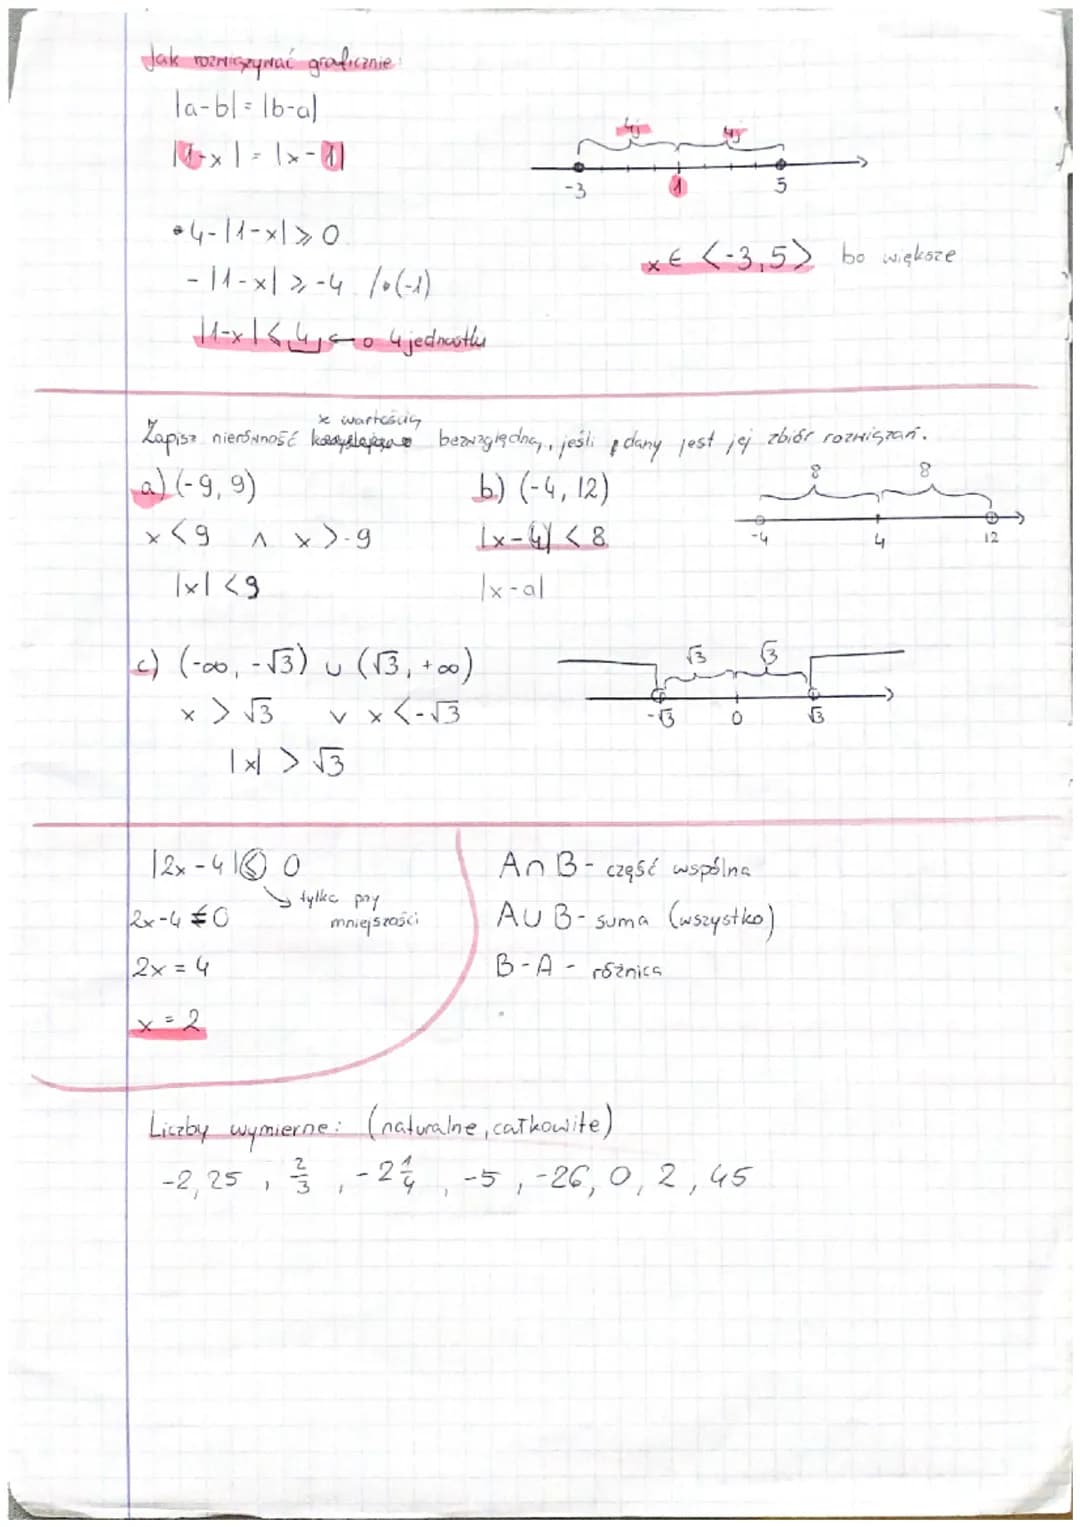 Jak rozwiązywać graficznie:
|a-b| = |b-a|
|1-x| = |x-1|
4j 4j
-3 1 5
• 4-|1-x| ⩾ 0
x ∈ <-3,5> bo większe
-|1-x| ⩾ -4 /•(-1)
|1-x| ⩽ 4 ← o 4 jednostki
z wartością
Zapisz nierówność bezwzględną, jeśli dany jest jej zbiór rozwiązań.
a) (-9, 9)
x < 9 ∧ x > -9
|x| < 9
b) (-4, 12)
|x-4| < 8
|x-a|
8 8
-4 4 12
c) (-∞, -√3) ∪ (√3, +∞)
x > √3 ∨ x < -√3
|x| > √3
√3 √3
-√3 0 √3
|2x-4| ⩽ 0
↘ tylko przy
mniejszości
2x-4 ≠ 0
2x = 4
x = 2
A ∩ B - część wspólna
A ∪ B - suma (wszystko)
B - A - różnica
Liczby wymierne: (naturalne, całkowite)
-2,25 , 2/3 , -2 1/4 , -5 , -26, 0, 2, 45